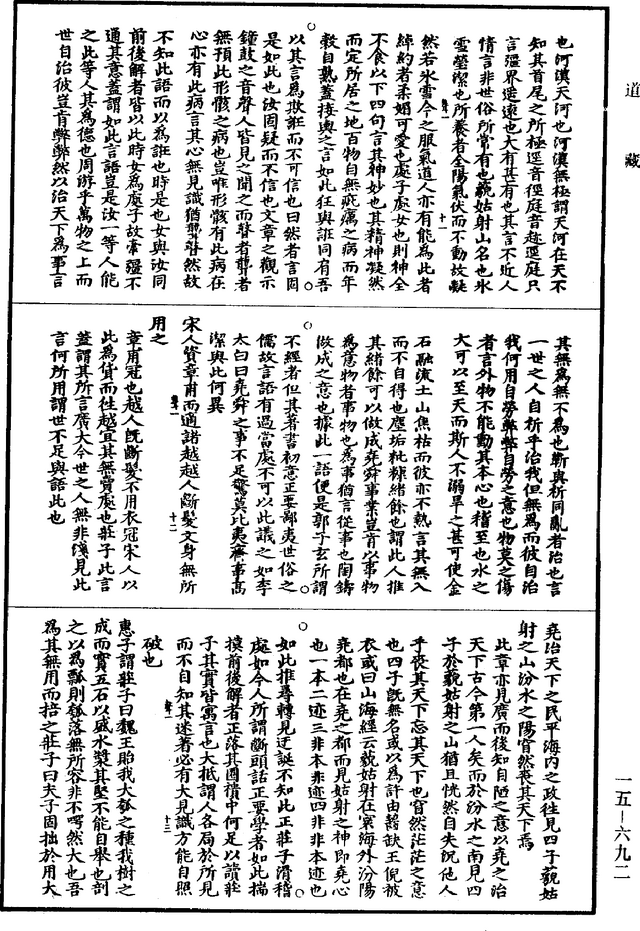 道藏
也河漢天河也河漢無極謂天河在天不
知其首尾之所極逕音徑庭音趂逕庭只
言疆界遥遠也大有甚有也其言不近人
情言非世俗所常有也藐姑射山名也氷
雪瑩潔也所養者全陽氣伏而不動故凝
然若氷雪今之服氣道人亦有能為此者
綽約者柔媚可愛也處子處女也則神全
不食以下四句言其神妙也其精神凝然
而定所居之地百物自無疵癘之病而年
穀自熟蓋接輿之言如此狂與誑同有吾
以其言為欺誑而不可信也曰然者言固
是如此也汝固疑而不信也文章之觀示
鐘鼓之音聲人皆見之聞之而瞽者聾者
無預此形骸之病也豈唯形骸有此病在
心亦有此病言其心無見識猶聾瞽然故
不知此語而以為誑也時是也女與汝同
前後解者皆以此時女為處子故牽彊不
通其意蓋謂如此言語豈是汝一等人能
之此等人其為德也周游乎萬物之上而
世自治彼豈肯弊弊然以治天下為事言
其無為無不為也蘄與祈同亂者治也言
一世之人自祈乎治我但無為而彼自治
我何用自勞弊弊自勞之意也物莫之傷
者言外物不能動其本心也稽至也水之
大可以至天而斯人不溺旱之甚可使金
石融流土山焦枯而彼亦不熱言其無入
而不自得也塵垢粃糠緒餘也謂此人推
其緒餘可以做成堯舜事業豈肯以事物
為意物者事物也為事猶言從事也陶鑄
做成之意也據此一語便是郭子玄所謂
不經者但其著書初意正要鄙夷世俗之
儒故言語有過當處不可以此議之如李
太白曰堯舜之事不足驚莫比夷齊事高
潔與此何異
宋人資章甫而適諸越越人斷髮文身無所
用之
章甫冠也越人既斷髮不用衣冠宋人以
此為貨而往越宜其無賣處也莊子此言
蓋謂其所言廣大今世之人無非淺見此
言何所用謂世不足與語此也
堯治天下之民平海内之政往見四子藐姑
射之山汾水之陽窅然喪其天下焉
此章亦見廣而後知自陋之意以堯之治
天下古今第一人矣而於汾水之南見四
子於藐姑射之山猶且恍然自失况他人
乎喪其天下忘其天下也窅然茫茫之意
也四子既無名或以為許由齧缺王倪被
衣或曰山海經云藐姑射在寰海外汾陽
堯都也在堯之都而見姑射之神即堯心
也一本二迹三非本非迹四非非本迹也
如此推尋轉見迂誕不知此正莊子滑稽
處如今人所謂斷頭話正要學者如此揣
摸前後解者正落其圈樻中何足以讀莊
子其實皆寓言也大抵謂人各局於所見
而不自知其迷著必有大見識方能自照
破也
惠子謂莊子曰魏王貽我大瓠之種我樹之
成而實五石以盛水漿其堅不能自舉也剖
之以為瓢則瓠落無所容非不呺然大也吾
為其無用而掊之莊子曰夫子固拙於用大
一五—六九二